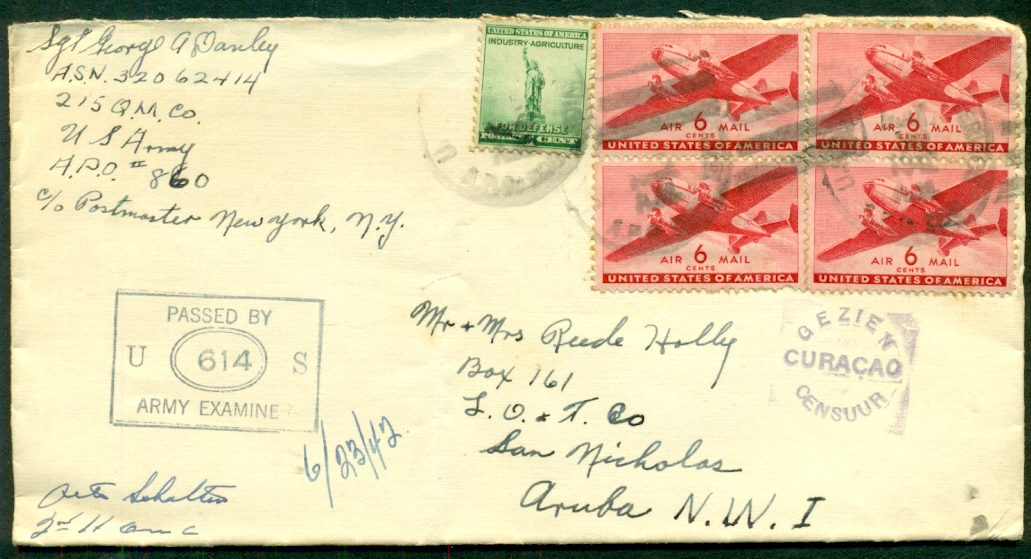 Sgt George A Danley
A.S.N. 32062414
215 Q.M. Co.
U S Army
A.P.O. # 860
c/o Postmaster New york, N.Y.
UNITED STATES OF AMERICA
INDUSTRY · AGRICULTURE
FOR DEFENSE
CENT
AIR 6 MAIL
CENTS
UNITED STATES OF AMERICA
AIR 6 MAIL
CENTS
UNITED STATES OF AMERICA
AIR 6 MAIL
CENTS
UNITED STATES OF AMERICA
AIR 6 MAIL
CENTS
UNITED STATES OF AMERICA
PASSED BY
U 614 S
ARMY EXAMINE
6/23/42
Mr + Mrs Reede Holly
Box 161
L.O. & T. Co
San Nicholas
Aruba N.W.I
GEZIEN
CURAÇAO
CENSUUR
2nd